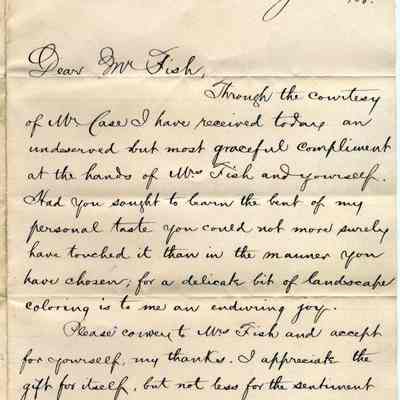 Dear Mr Fish,
Through the courtesy
of Mr Case I have received today an
undeserved but most graceful compliment
at the hands of Mrs Fish and yourself.
Had you sought to learn the bent of my
personal taste you could not more surely
have touched it than in the manner you
have chosen; for a delicate bit of landscape
coloring is to me an enduring joy.
Please convey to Mrs Fish and accept
for yourself, my thanks. I appreciate the
gift for itself, but not less for the sentiment